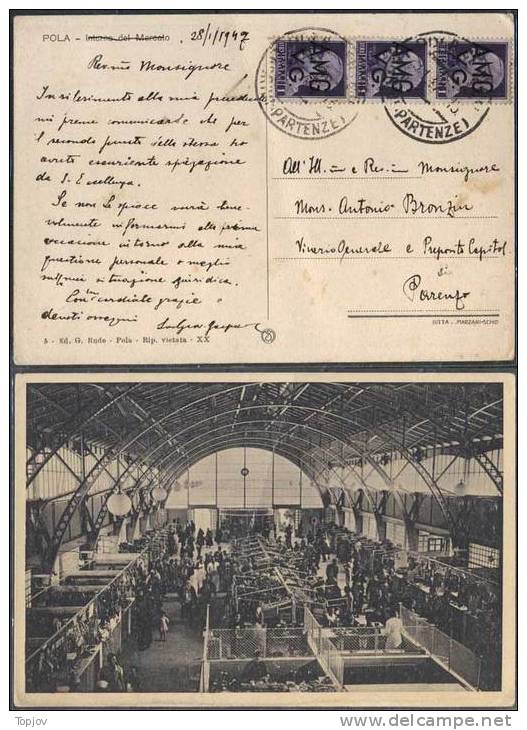 POLA - Interno del Mercato 28/1/1947
Rev.mo Monsignore
In riferimento alla mia precedente
mi preme comunicarle che per
il secondo punto della stessa ho
avuto esauriente spiegazione
da S. Eccellenza.
Se non Le spiace vorrà bene-
volmente informarmi alla prima
occasione intorno alla mia
questione personale o meglio
sulla mia situazione giuridica.
Con cordiale grazie e
devoti ossequi
5 - Ed. G. Rude - Pola - Rip. vietata - XX
AMG
VG
AMG
VG
AMG
VG
(PARTENZE)
(PARTENZE)
All' Ill.mo e Rev.mo Monsignore
Mons. Antonio Bronzin
Vicario Generale e Preposito Capitol.
di
Parenzo
DITTA - MARZARI-SCHIO
Topjov
www.delcampe.net